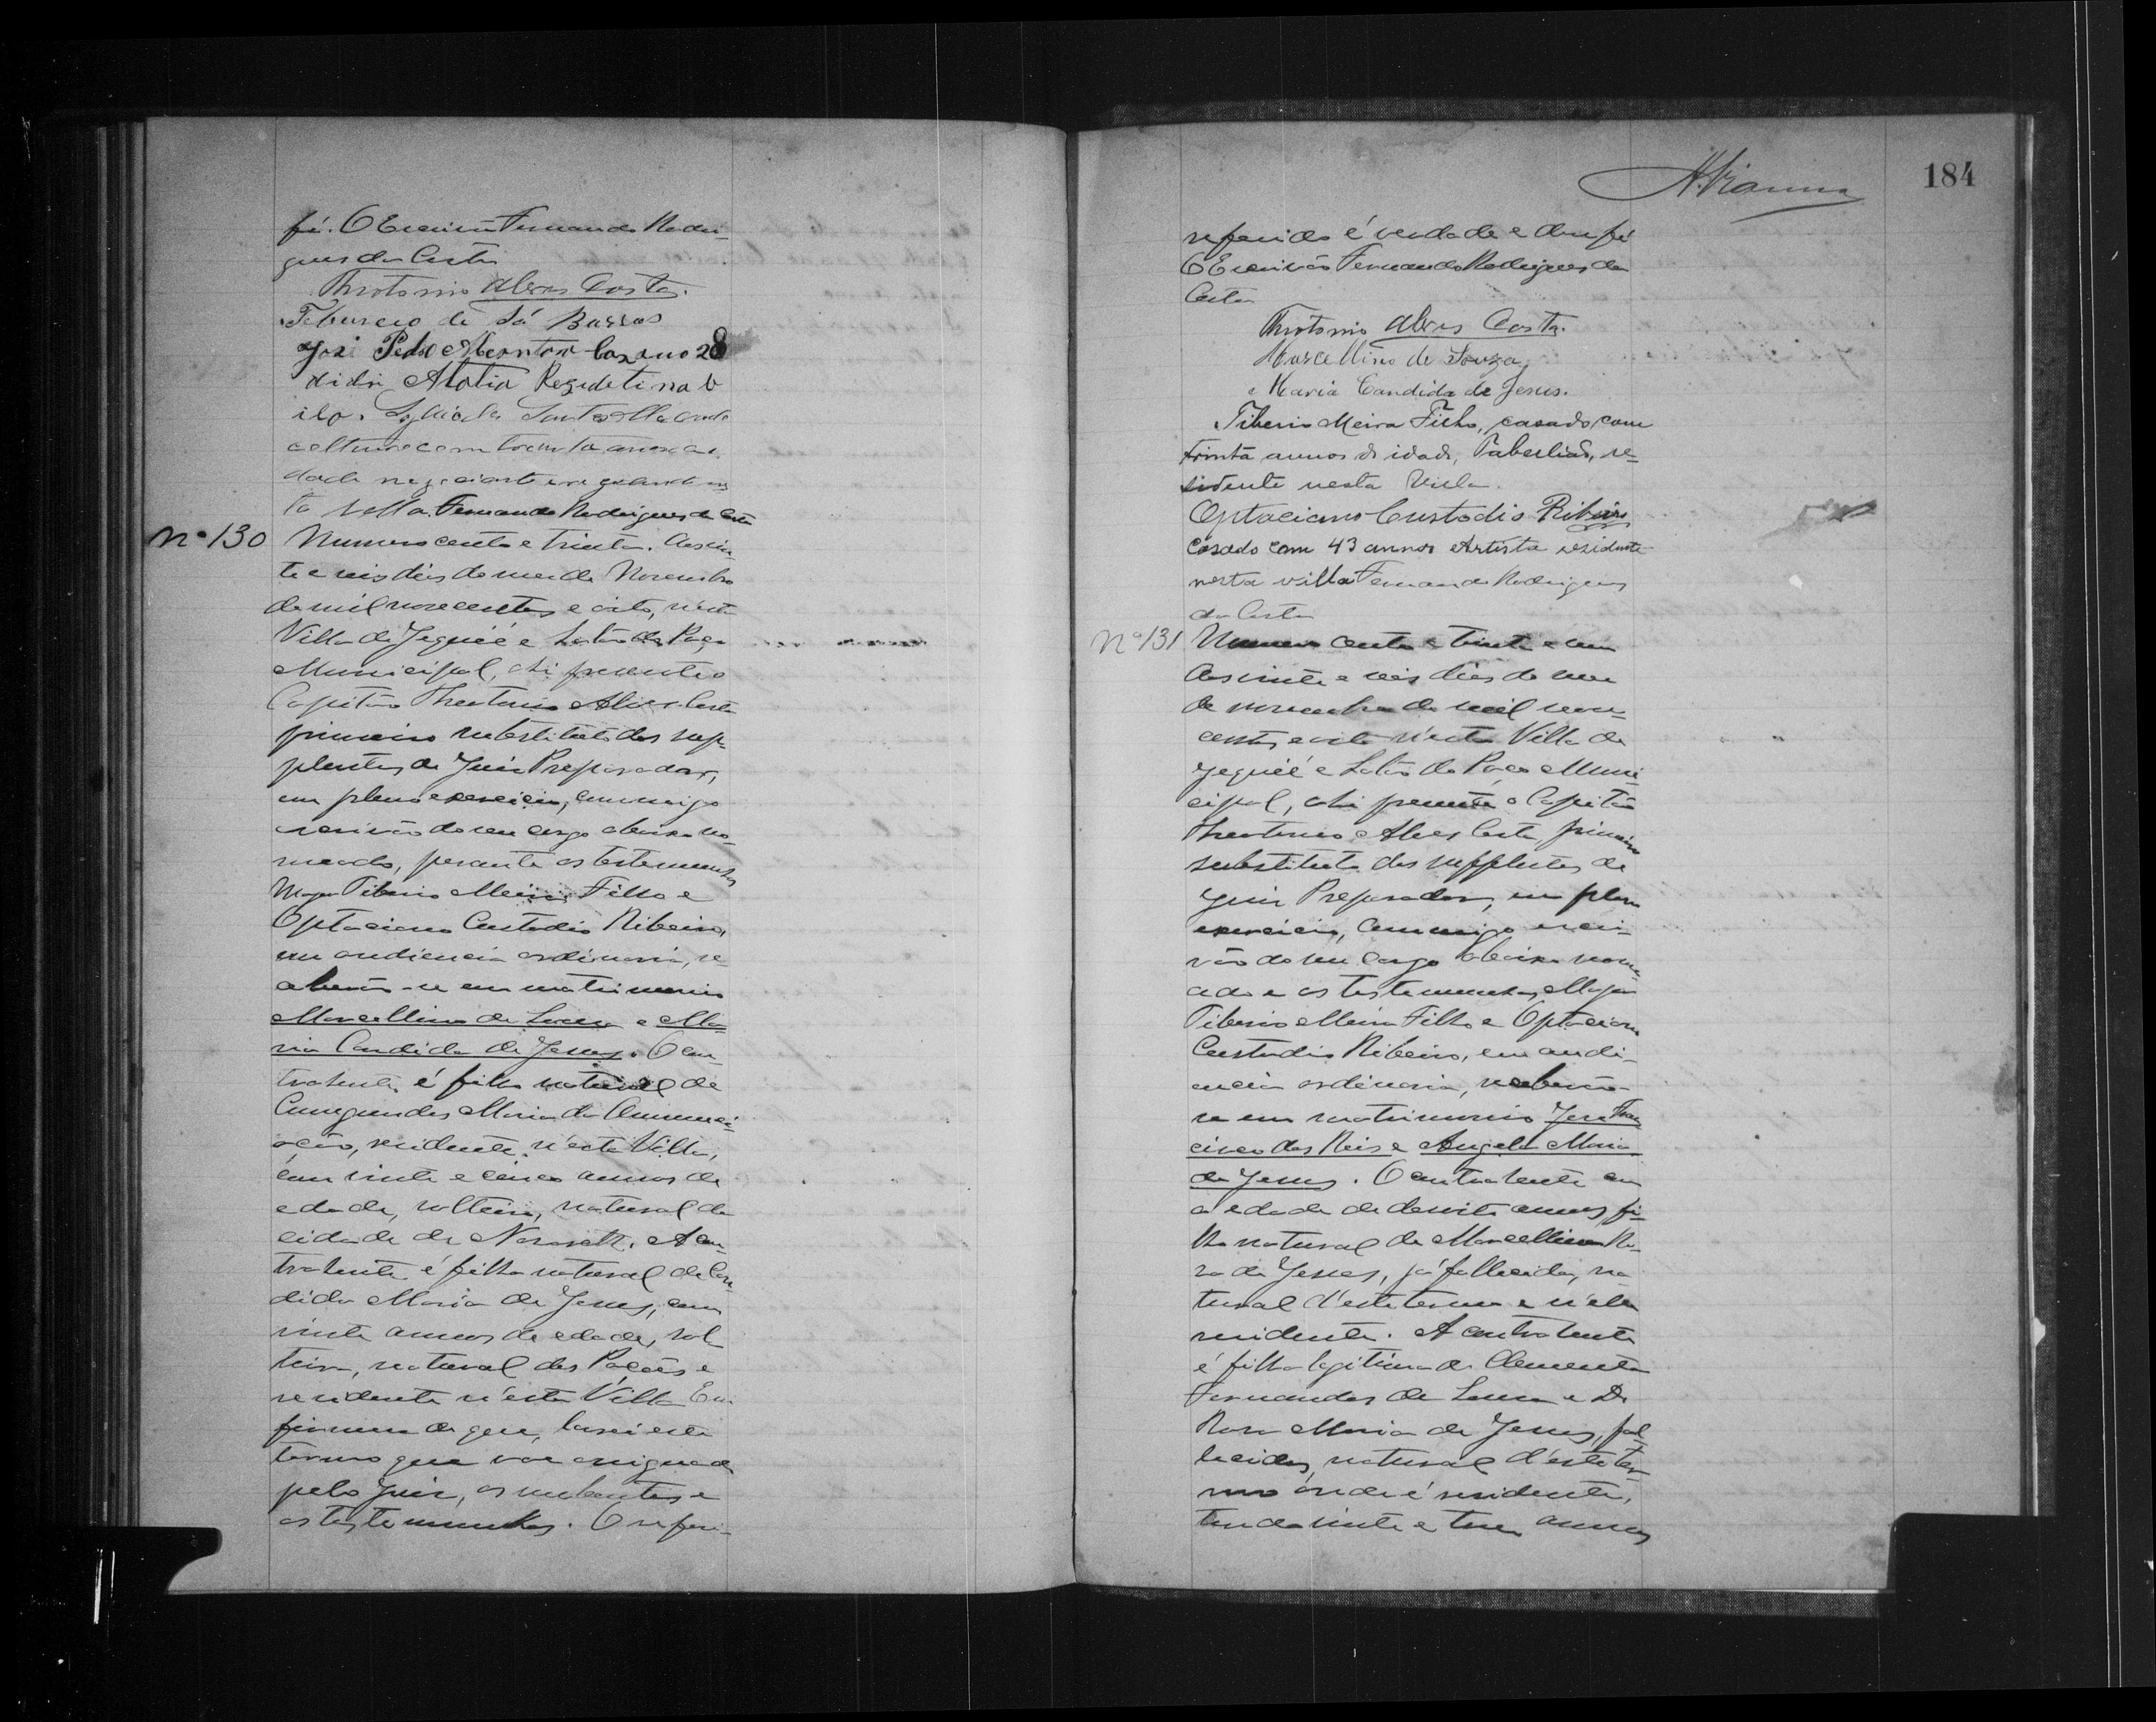 fé. O Escrivão Fernando Rodri-
gues da Costa
Theotonio Alves Costa.
Teburcio de Sá Barros
José Pedro casano 28
didi Rezedeti na v
ila.
solteiro com trinta annos de
dade negociante
ta villa. Fernando Rodrigues da Costa
Nº 130 Numero cento e trinta. Aos vin-
te e seis dias do mez de Novembro
de mil novecentos e oito, n'esta
Villa de Jequié e Salão do Paço
Municipal, ahi presente o
Capitão Theotonio Alves Costa
primeiro substituto dos sup-
plentes de Juiz Preparador,
em pleno exercicio, commigo
escrivão do seu cargo abaixo no-
meado, perante as testemunhas
Major Tiberio Meira Filho e
Optaciano Custodio Ribeiro,
em audiencia ordinaria, re-
ceberão-se em matrimonio
Marcellino de Souza e Ma-
ria Candida de Jesus. O con-
trahente é filho natural de
Cunegundes Maria da Annunci-
ação, residente n'esta Villa,
com vinte e cinco annos de
edade, solteiro, natural da
cidade de Nazareth. A con-
trahente é filha natural de Can-
dida Maria de Jesus, com
vinte annos de edade, sol-
teira, natural dos Poções e
residente n'esta Villa. Em
firmeza do que, lavrei este
termo que vae assignado
pelo Juiz, os nubentes e
as testemunhas. O referi-
A. Vianna
184
referido é verdade e dou fé
O Escrivão Fernando Rodrigues da
Costa
Theotonio Alves Costa.
Marcellino de Souza
Maria Candida de Jesus.
Tiberio Meira Filho, casado, com
trinta annos de idade, Tabellião, re-
sidente nesta Villa.
Optaciano Custodio Ribeiro
Casado com 43 annos Artista residente
nesta villa Fernando Rodrigues
da Costa
Nº 131 Numero cento e trinta e um
Aos vinte e seis dias do mez
de novembro de mil nove-
centos e oito n'esta Villa de
Jequié e Salão do Paço Muni-
cipal, ahi presente o Capitão
Theotonio Alves Costa, primeiro
substituto dos supplentes de
Juiz Preparador, em pleno
exercicio, commigo escri-
vão do seu cargo abaixo nome-
ado e as testemunhas, Major
Tiberio Meira Filho e Optaciano
Custodio Ribeiro, em audi-
encia ordinaria, receberão-
se em matrimonio José Fran-
cisco dos Reis e Angela Maria
de Jesus. O contrahente com
a edade de desoito annos, fi-
lho natural de Marcellina Ro-
sa de Jesus, já fallecida, na-
tural d'este termo e n'elle
residente. A contrahente
é filha legitima de Clemente
Fernandes de Souza e D.
Rosa Maria de Jesus, fal-
lecidos, natural d'este ter-
mo onde é residente,
tendo vinte e tres annos